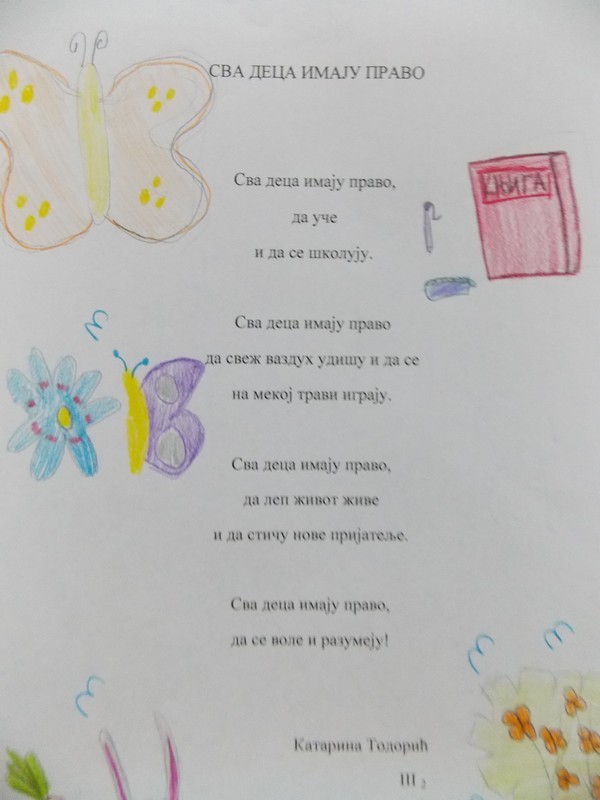 СВА ДЕЦА ИМАЈУ ПРАВО
Сва деца имају право,
да уче
и да се школују.
КЊИГА
Сва деца имају право
да свеж ваздух удишу и да се
на мекој трави играју.
Сва деца имају право,
да леп живот живе
и да стичу нове пријатеље.
Сва деца имају право,
да се воле и разумеју!
Катарина Тодорић
III 2